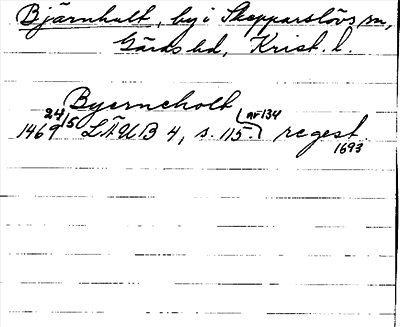 Bjärnhult, by i Skepparslövs sn,
Gärds hd, Krist. l.
Byerneholt
1469 24/5 LÄUB 4, s. 115. nr 134 regest.
1693